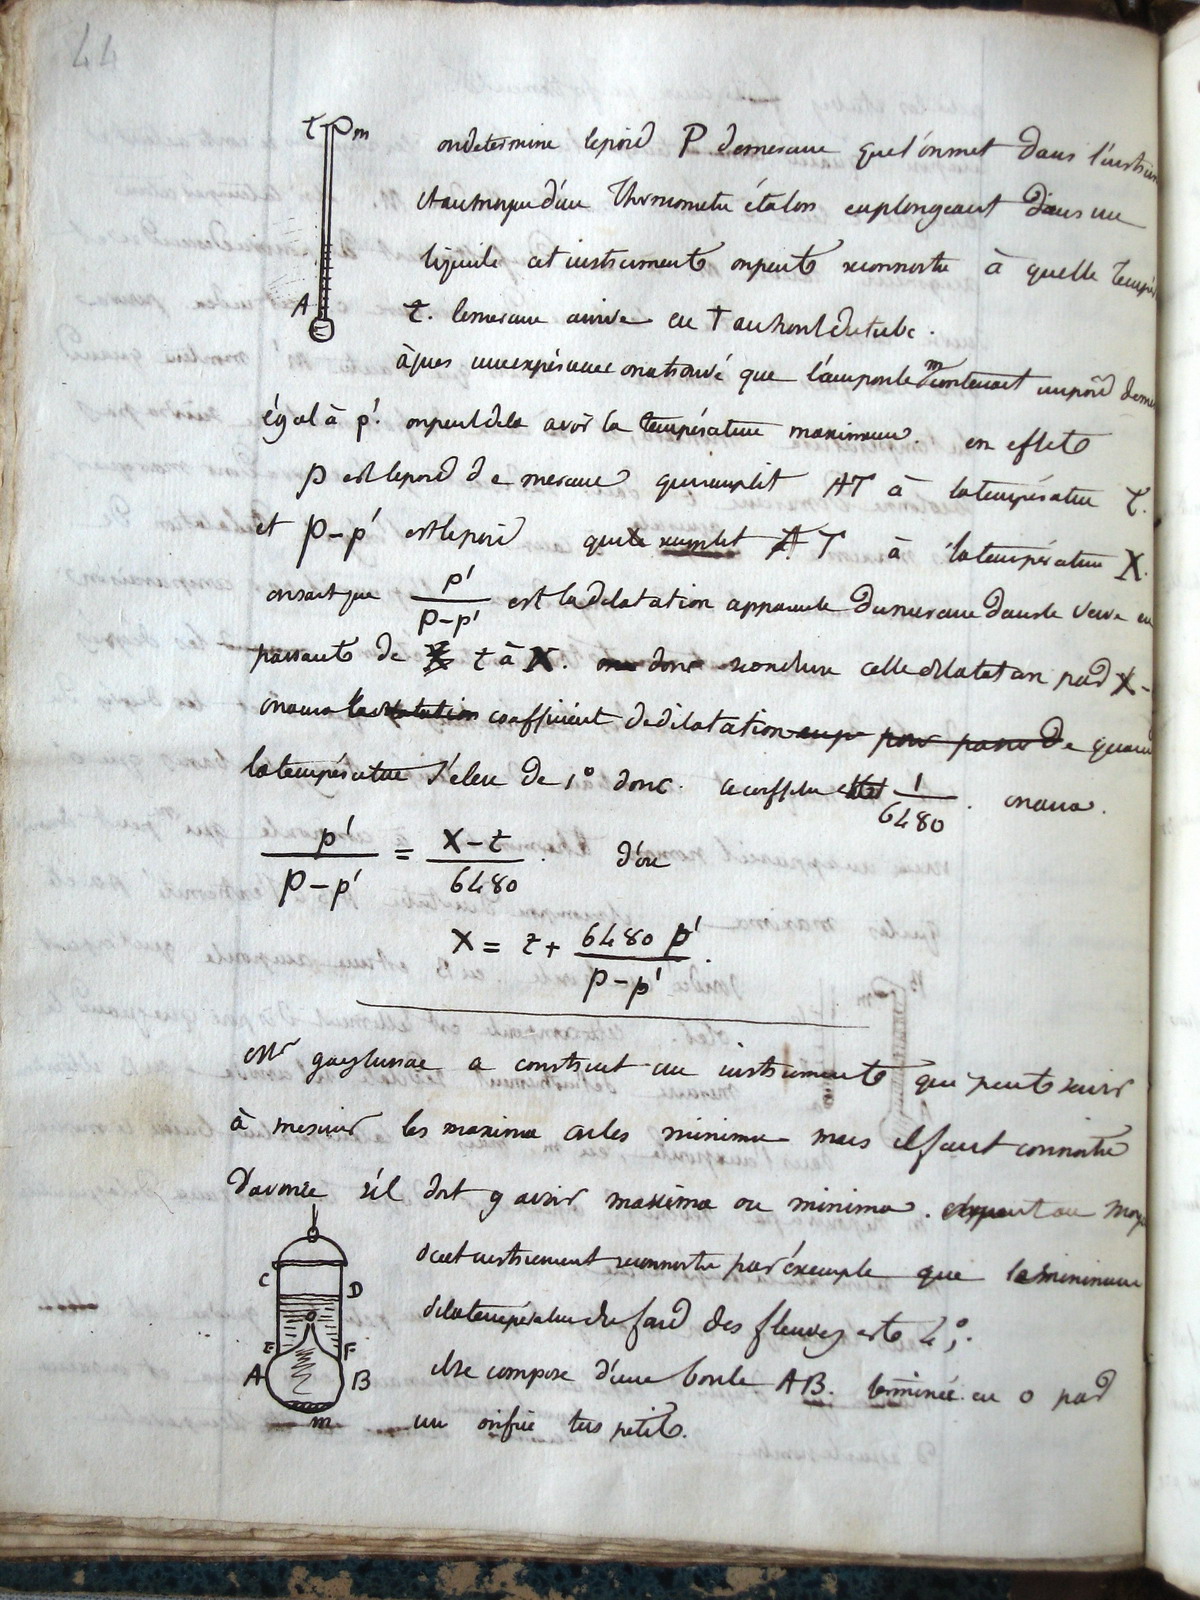 44
T m
on determine le poid P de mercure que l'on met dans l'instrum
et au moyen d'un Thermometre étalon en plongeant dans un
liquide cet instrument on peut reconnoitre à quelle tempér
A
t. le mercure arrive en T au bout du tube.
après une expérience on a trouvé que l'ampoule m contenait un poid de mer
égal à p'. on peut de la avoir la température maximum. en effet
p est le poid de mercure qui remplit AT à la température t.
et p-p' est le poid qui remplit AT à la température X.
on sait que p'/p-p' est la dilatation apparente du mercure dans le verre en
passant de t à X. donc cette dilatation par X-
on aura la dilatation coefficient de dilatation pour passer de quand
la température s'eleve de 1° donc ce coeffi est 1/6480. on aura.
p'/p-p' = X-t/6480. d'où
X = t + 6480 p'/p-p'.
Mr gaylussac a construit un instrument qui peut servir
à mesurer les maxima et les minima mais il faut connoitre
d'avance s'il doit y avoir maxima ou minima. et peut au moy
C D
de cet instrument reconnoitre par exemple que le minimum
de la température du fond des fleuves est 4°.
E F
A B
il se compose d'une boule AB. terminée en o par
m
un orifice très petit.